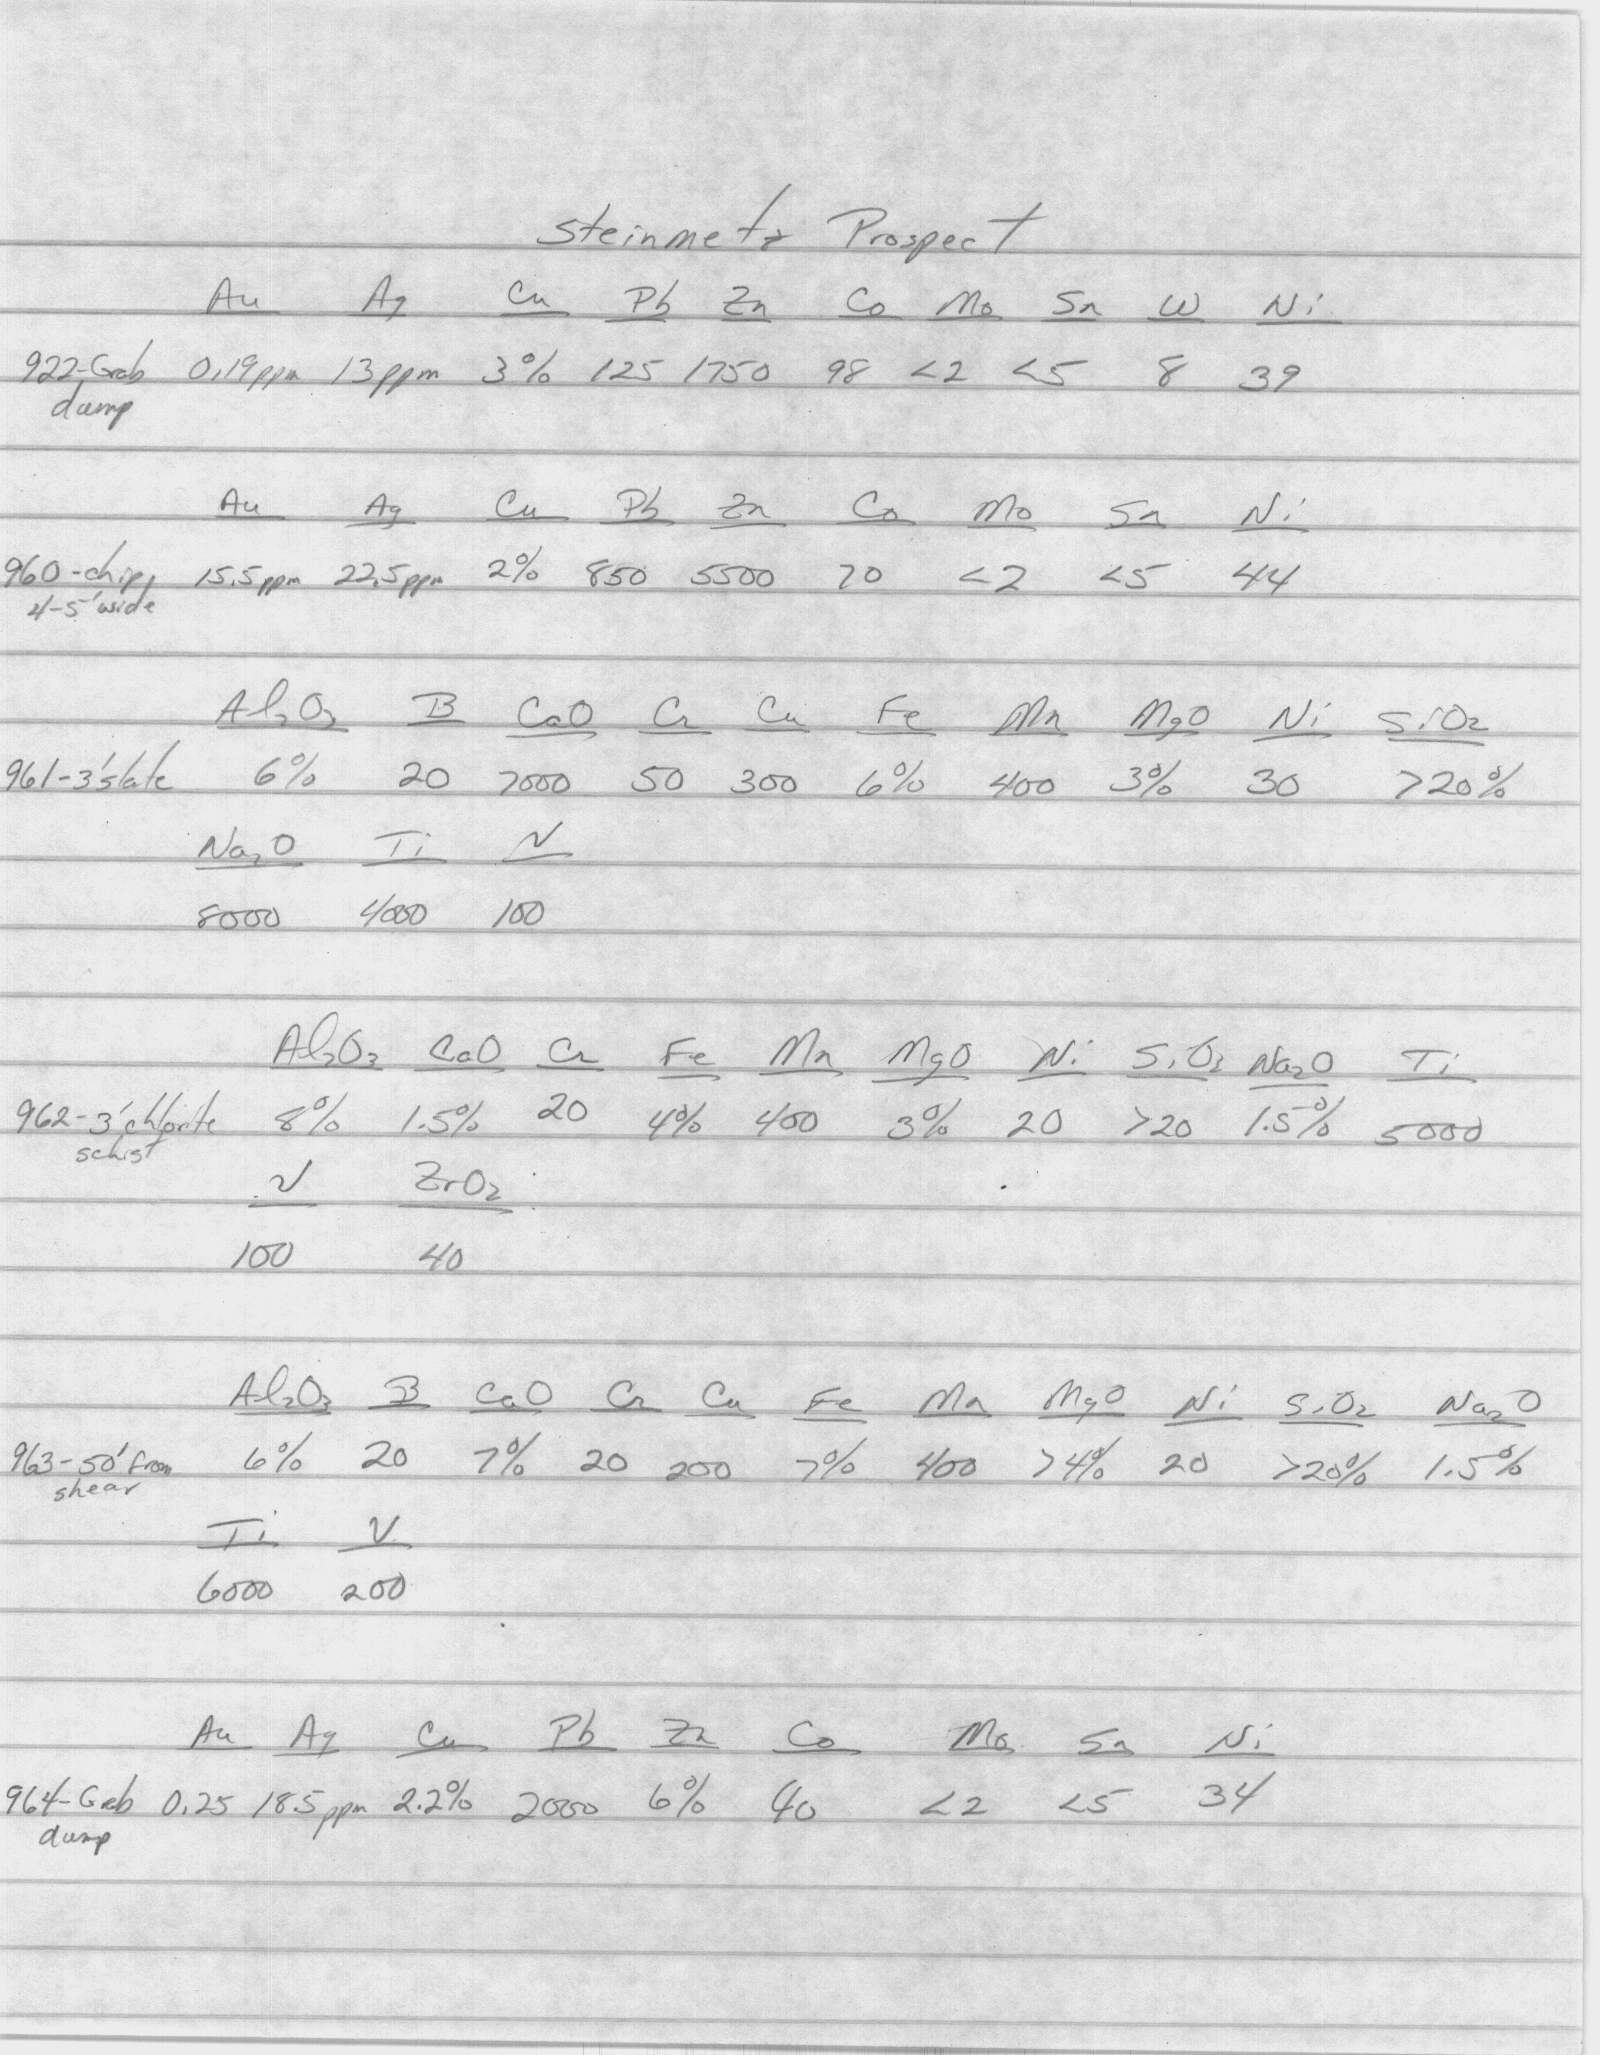 Steinmetz Prospect
Au Ag Cu Pb Zn Co Mo Sn W Ni
922-Grab 0.19ppm 13ppm 3% 125 1750 98 <2 <5 8 39
dump
Au Ag Cu Pb Zn Co Mo Sn Ni
960-chip, 15.5ppm 22.5ppm 2% 850 5500 70 <2 <5 44
4-5' wide
Al2O3 B CaO Cr Cu Fe Mn MgO Ni SiO2
961-3' slate 6% 20 7000 50 300 6% 400 3% 30 >20%
Na2O Ti V
8000 4000 100
Al2O3 CaO Cr Fe Mn MgO Ni SiO2 Na2O Ti
962-3' chlorite 8% 1.5% 20 4% 400 3% 20 >20 1.5% 5000
schist
V ZrO2
100 40
Al2O3 B CaO Cr Cu Fe Mn MgO Ni SiO2 Na2O
963-50' from 6% 20 7% 20 200 7% 400 >4% 20 >20% 1.5%
shear
Ti V
6000 200
Au Ag Cu Pb Zn Co Mo Sn Ni
964-Grab 0.25 18.5ppm 2.2% 2000 6% 40 <2 <5 34
dump